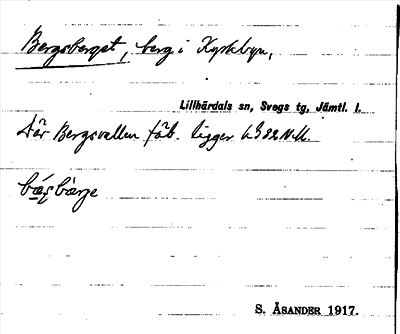 Bergsberget, berg i Kyrkbyn,
Lillhärdals sn, Svegs tg, Jämtl. l.
Där Bergsvallen fäb. ligger
S. ÅSANDER 1917.